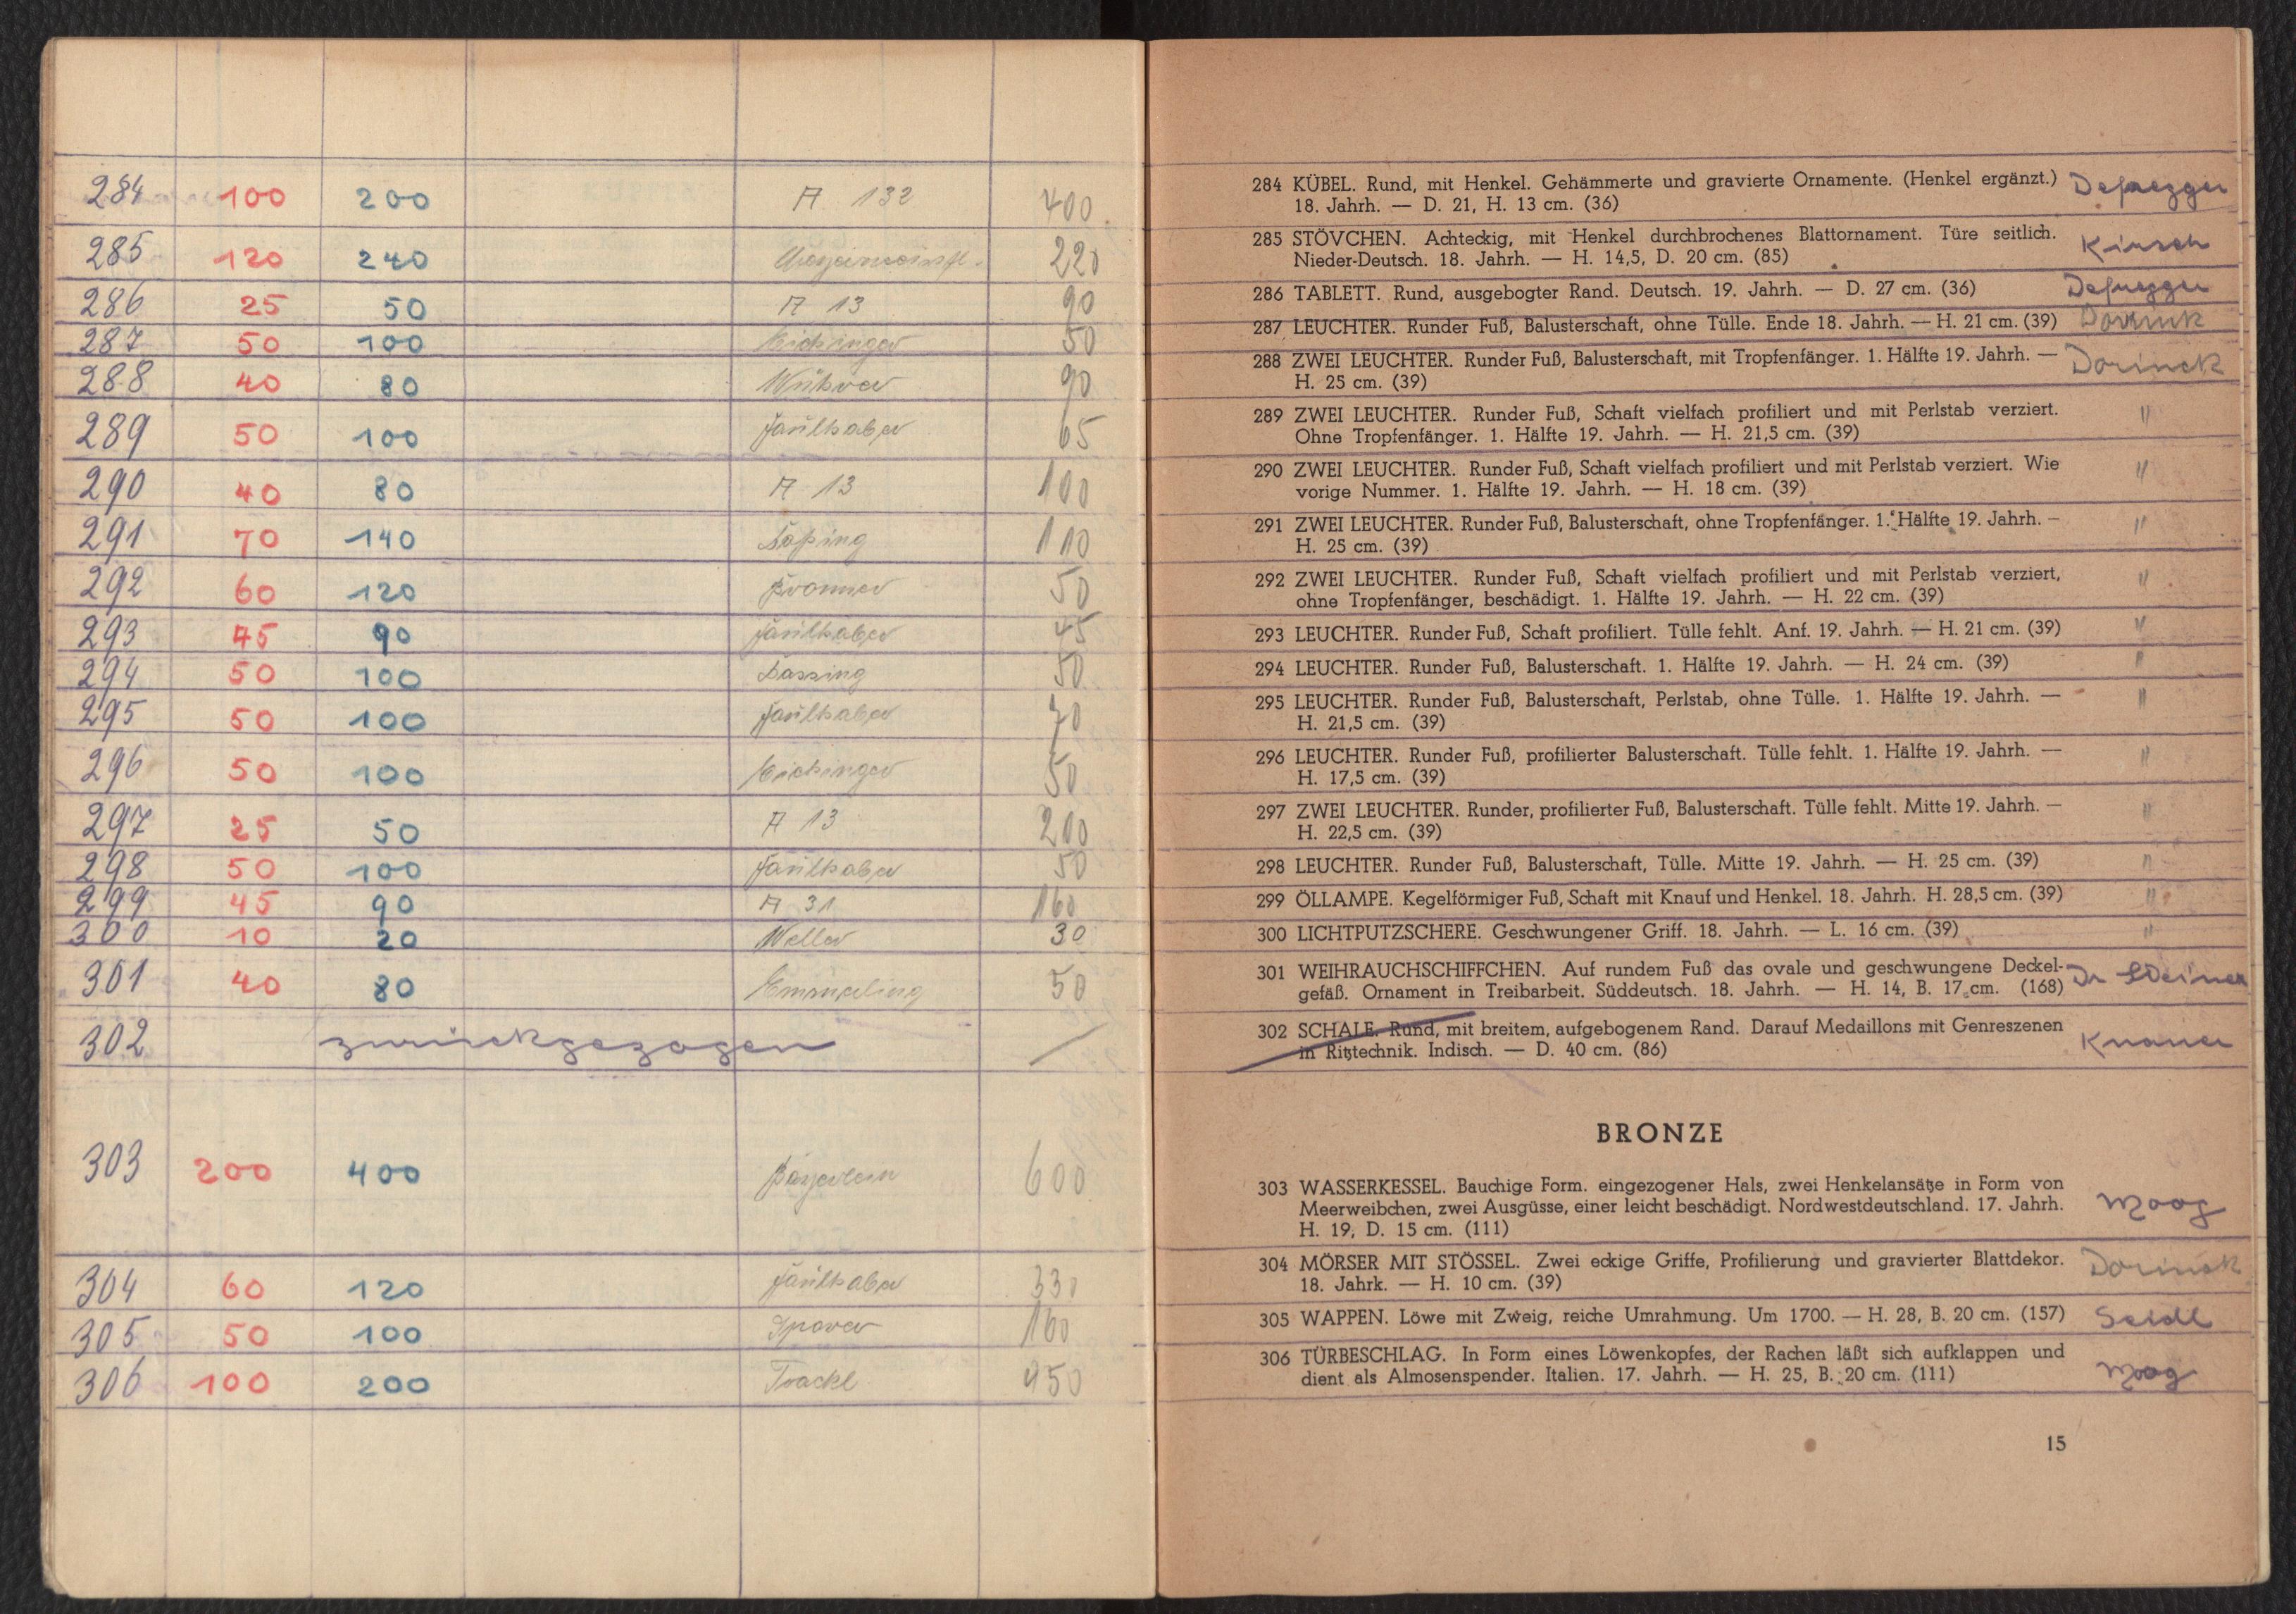 284 100 200 A 132 400
285 120 240 220
286 25 50 A 13 90
287 50 100 Eichinger 50
288 40 80 Wührer 90
289 50 100 Faulhaber 65
290 40 80 A 13 100
291 70 140 110
292 60 120 Bronner 50
293 45 90 Faulhaber 45
294 50 100 Dassing 50
295 50 100 Faulhaber 70
296 50 100 Eichinger 50
297 25 50 A 13 200
298 50 100 Faulhaber 50
299 45 90 A 31 160
300 10 20 Weller 30
301 40 80 Emmerling 50
302 zurückgezogen /
303 200 400 600
304 60 120 Faulhaber 330
305 50 100 160
306 100 200 450
284 KÜBEL. Rund, mit Henkel. Gehämmerte und gravierte Ornamente. (Henkel ergänzt.) Defregger
18. Jahrh. — D. 21, H. 13 cm. (36)
285 STÖVCHEN. Achteckig, mit Henkel durchbrochenes Blattornament. Türe seitlich. Kirsch
Nieder-Deutsch. 18. Jahrh. — H. 14,5, D. 20 cm. (85)
286 TABLETT. Rund, ausgebogter Rand. Deutsch. 19. Jahrh. — D. 27 cm. (36) Defregger
287 LEUCHTER. Runder Fuß, Balusterschaft, ohne Tülle. Ende 18. Jahrh. — H. 21 cm. (39) Dorinck
288 ZWEI LEUCHTER. Runder Fuß, Balusterschaft, mit Tropfenfänger. 1. Hälfte 19. Jahrh. — Dorinck
H. 25 cm. (39)
289 ZWEI LEUCHTER. Runder Fuß, Schaft vielfach profiliert und mit Perlstab verziert. "
Ohne Tropfenfänger. 1. Hälfte 19. Jahrh. — H. 21,5 cm. (39)
290 ZWEI LEUCHTER. Runder Fuß, Schaft vielfach profiliert und mit Perlstab verziert. Wie "
vorige Nummer. 1. Hälfte 19. Jahrh. — H. 18 cm. (39)
291 ZWEI LEUCHTER. Runder Fuß, Balusterschaft, ohne Tropfenfänger. 1. Hälfte 19. Jahrh. — "
H. 25 cm. (39)
292 ZWEI LEUCHTER. Runder Fuß, Schaft vielfach profiliert und mit Perlstab verziert, "
ohne Tropfenfänger, beschädigt. 1. Hälfte 19. Jahrh. — H. 22 cm. (39)
293 LEUCHTER. Runder Fuß, Schaft profiliert. Tülle fehlt. Anf. 19. Jahrh. — H. 21 cm. (39) "
294 LEUCHTER. Runder Fuß, Balusterschaft. 1. Hälfte 19. Jahrh. — H. 24 cm. (39) "
295 LEUCHTER. Runder Fuß, Balusterschaft, Perlstab, ohne Tülle. 1. Hälfte 19. Jahrh. — "
H. 21,5 cm. (39)
296 LEUCHTER. Runder Fuß, profilierter Balusterschaft. Tülle fehlt. 1. Hälfte 19. Jahrh. — "
H. 17,5 cm. (39)
297 ZWEI LEUCHTER. Runder, profilierter Fuß, Balusterschaft. Tülle fehlt. Mitte 19. Jahrh. — "
H. 22,5 cm. (39)
298 LEUCHTER. Runder Fuß, Balusterschaft, Tülle. Mitte 19. Jahrh. — H. 25 cm. (39) "
299 ÖLLAMPE. Kegelförmiger Fuß, Schaft mit Knauf und Henkel. 18. Jahrh. H. 28,5 cm. (39) "
300 LICHTPUTZSCHERE. Geschwungener Griff. 18. Jahrh. — L. 16 cm. (39) "
301 WEIHRAUCHSCHIFFCHEN. Auf rundem Fuß das ovale und geschwungene Deckel- Dr
gefäß. Ornament in Treibarbeit. Süddeutsch. 18. Jahrh. — H. 14, B. 17 cm. (168)
302 SCHALE. Rund, mit breitem, aufgebogenem Rand. Darauf Medaillons mit Genreszenen Knauer
in Ritztechnik. Indisch. — D. 40 cm. (86)
BRONZE
303 WASSERKESSEL. Bauchige Form. eingezogener Hals, zwei Henkelansätze in Form von
Meerweibchen, zwei Ausgüsse, einer leicht beschädigt. Nordwestdeutschland. 17. Jahrh. Moog
H. 19, D. 15 cm. (111)
304 MÖRSER MIT STÖSSEL. Zwei eckige Griffe, Profilierung und gravierter Blattdekor. Dorinck
18. Jahrk. — H. 10 cm. (39)
305 WAPPEN. Löwe mit Zweig, reiche Umrahmung. Um 1700. — H. 28, B. 20 cm. (157) Seidl
306 TÜRBESCHLAG. In Form eines Löwenkopfes, der Rachen läßt sich aufklappen und
dient als Almosenspender. Italien. 17. Jahrh. — H. 25, B. 20 cm. (111) Moog
15